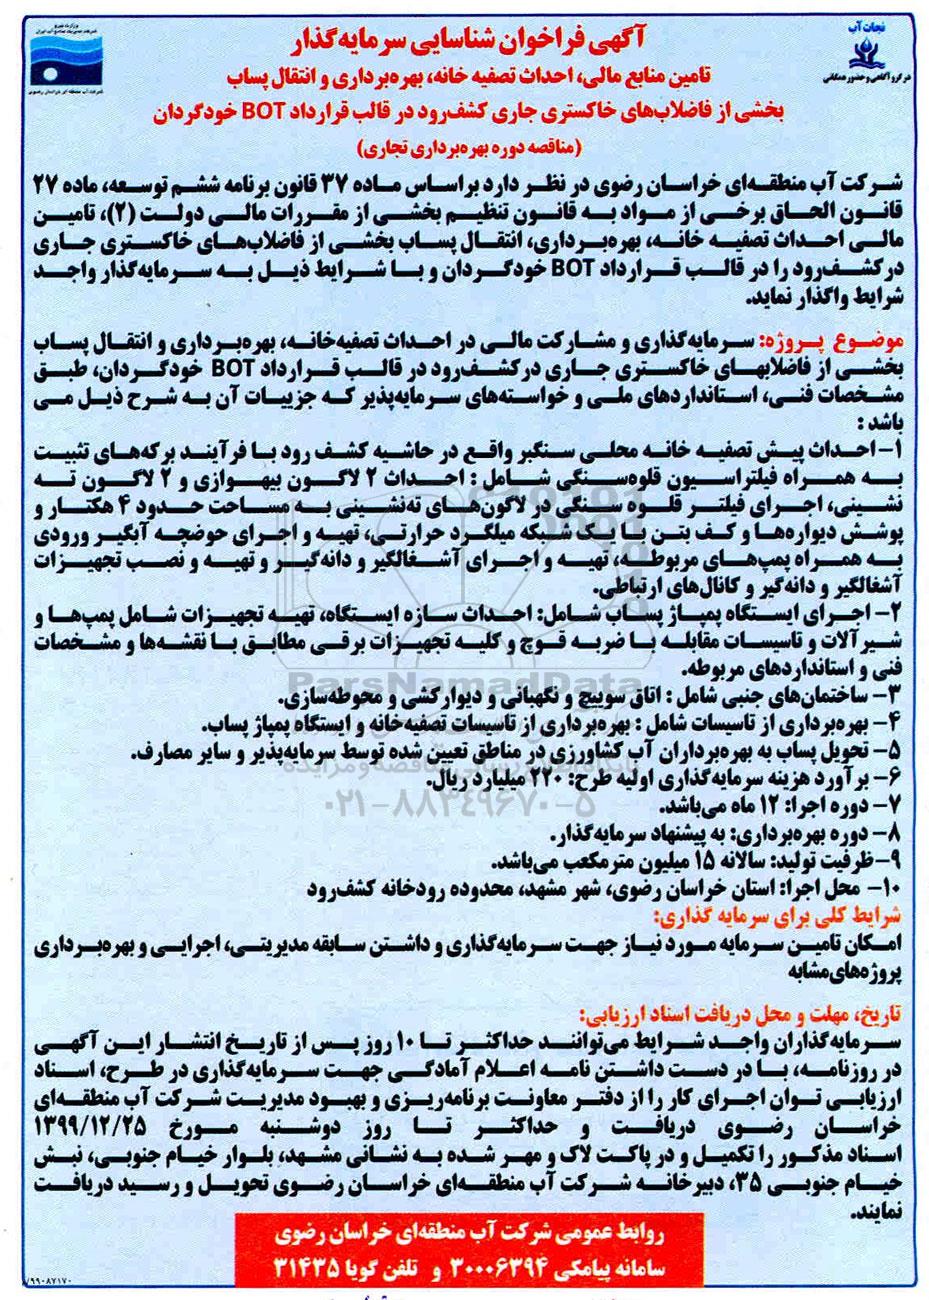 وزارت نیرو
شرکت مدیریت منابع آب ایران
شرکت آب منطقه ای خراسان رضوی
نجات آب
در گرو آگاهی و حضور همگانی
آگهی فراخوان شناسایی سرمایه‌گذار
تامین منابع مالی، احداث تصفیه خانه، بهره‌برداری و انتقال پساب
بخشی از فاضلاب‌های خاکستری جاری کشف‌رود در قالب قرارداد BOT خودگردان
(مناقصه دوره بهره‌برداری تجاری)
شرکت آب منطقه‌ای خراسان رضوی در نظر دارد براساس ماده ۳۷ قانون برنامه ششم توسعه، ماده ۲۷
قانون الحاق برخی از مواد به قانون تنظیم بخشی از مقررات مالی دولت (۲)، تامین
مالی احداث تصفیه خانه، بهره‌برداری، انتقال پساب بخشی از فاضلاب‌های خاکستری جاری
درکشف‌رود را در قالب قرارداد BOT خودگردان و با شرایط ذیل به سرمایه‌گذار واجد
شرایط واگذار نماید.
موضوع پروژه: سرمایه‌گذاری و مشارکت مالی در احداث تصفیه‌خانه، بهره‌برداری و انتقال پساب
بخشی از فاضلابهای خاکستری جاری درکشف‌رود در قالب قرارداد BOT خودگردان، طبق
مشخصات فنی، استانداردهای ملی و خواسته‌های سرمایه‌پذیر که جزییات آن به شرح ذیل می
باشد :
۱- احداث پیش تصفیه خانه محلی سنگبر واقع در حاشیه کشف رود با فرآیند برکه‌های تثبیت
به همراه فیلتراسیون قلوه‌سنگی شامل : احداث ۲ لاگون بیهوازی و ۲ لاگون ته
نشینی، اجرای فیلتر قلوه سنگی در لاگون‌های ته‌نشینی به مساحت حدود ۴ هکتار و
پوشش دیواره‌ها و کف بتن با یک شبکه میلگرد حرارتی، تهیه و اجرای حوضچه آبگیر ورودی
به همراه پمپ‌های مربوطه، تهیه و اجرای آشغالگیر و دانه‌گیر و تهیه و نصب تجهیزات
آشغالگیر و دانه‌گیر و کانال‌های ارتباطی.
۲- اجرای ایستگاه پمپاژ پساب شامل: احداث سازه ایستگاه، تهیه تجهیزات شامل پمپ‌ها و
شیرآلات و تاسیسات مقابله با ضربه قوچ و کلیه تجهیزات برقی مطابق با نقشه‌ها و مشخصات
فنی و استانداردهای مربوطه.
۳- ساختمان‌های جنبی شامل : اتاق سوییچ و نگهبانی و دیوارکشی و محوطه‌سازی.
۴- بهره‌برداری از تاسیسات شامل : بهره‌برداری از تاسیسات تصفیه‌خانه و ایستگاه پمپاژ پساب.
۵- تحویل پساب به بهره‌برداران آب کشاورزی در مناطق تعیین شده توسط سرمایه‌پذیر و سایر مصارف.
۶- برآورد هزینه سرمایه‌گذاری اولیه طرح: ۲۲۰ میلیارد ریال.
۷- دوره اجرا: ۱۲ ماه می‌باشد.
۸- دوره بهره‌برداری: به پیشنهاد سرمایه‌گذار.
۹- ظرفیت تولید: سالانه ۱۵ میلیون مترمکعب می‌باشد.
۱۰- محل اجرا: استان خراسان رضوی، شهر مشهد، محدوده رودخانه کشف‌رود
شرایط کلی برای سرمایه گذاری:
امکان تامین سرمایه مورد نیاز جهت سرمایه‌گذاری و داشتن سابقه مدیریتی، اجرایی و بهره‌برداری
پروژه‌های‌مشابه
تاریخ، مهلت و محل دریافت اسناد ارزیابی:
سرمایه‌گذاران واجد شرایط می‌توانند حداکثر تا ۱۰ روز پس از تاریخ انتشار این آگهی
در روزنامه، با در دست داشتن نامه اعلام آمادگی جهت سرمایه‌گذاری در طرح، اسناد
ارزیابی توان اجرای کار را از دفتر معاونت برنامه‌ریزی و بهبود مدیریت شرکت آب منطقه‌ای
خراسان رضوی دریافت و حداکثر تا روز دوشنبه مورخ ۱۳۹۹/۱۲/۲۵
اسناد مذکور را تکمیل و در پاکت لاک و مهر شده به نشانی مشهد، بلوار خیام جنوبی، نبش
خیام جنوبی ۳۵، دبیرخانه شرکت آب منطقه‌ای خراسان رضوی تحویل و رسید دریافت
نمایند.
روابط عمومی شرکت آب منطقه‌ای خراسان رضوی
سامانه پیامکی ۳۰۰۰۶۳۹۴ و تلفن گویا ۳۱۴۳۵
/۹۹۰۸۷۱۷۰
ParsNamadData
۰۲۱-۸۸۳۴۹۶۷۰-۵